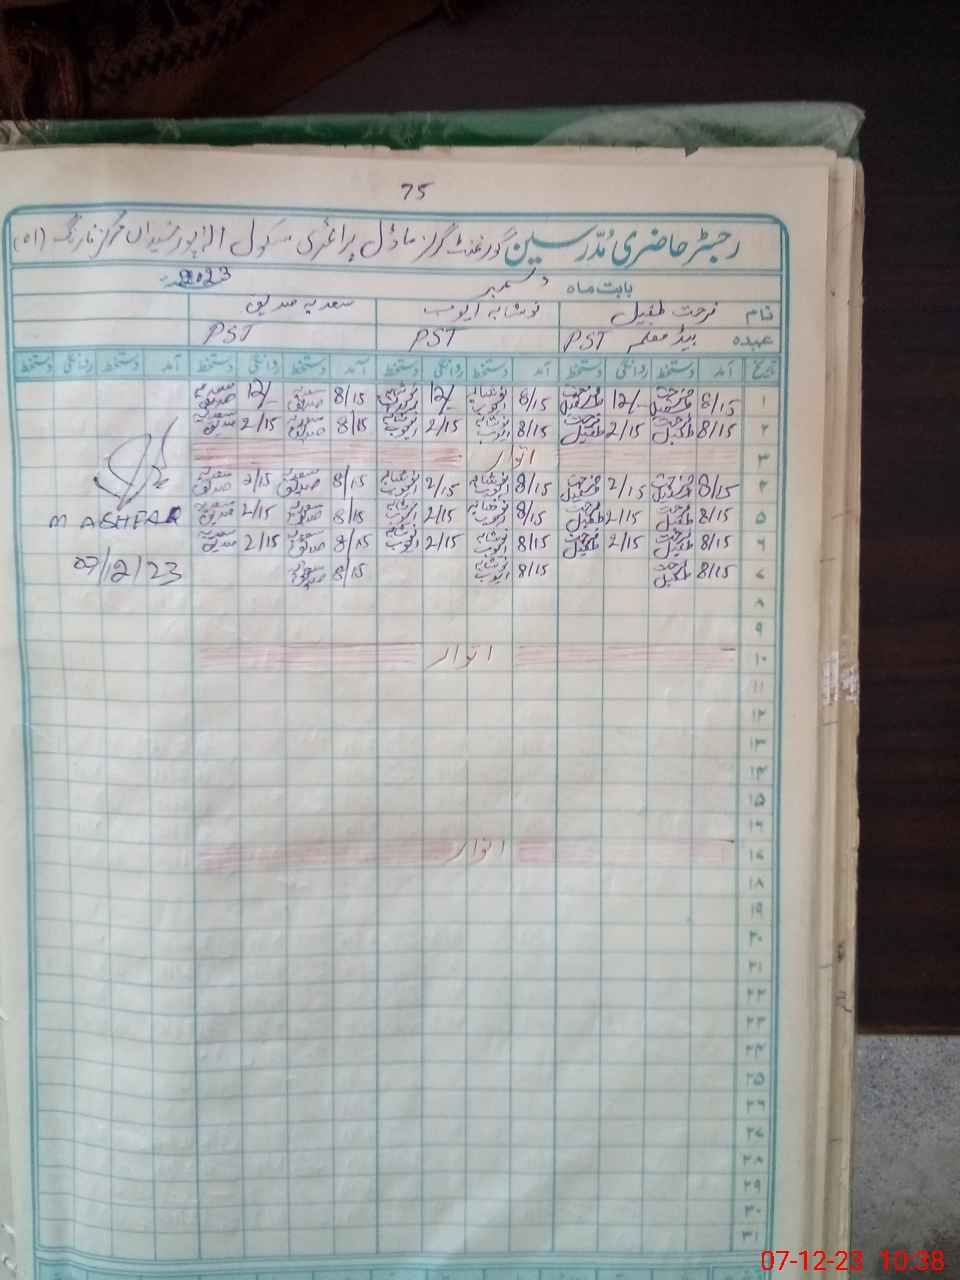 75
رجسٹر حاضری مُدّرسین گورنمنٹ گرلز ماڈل پرائمری سکول
بابت ماہ دسمبر 2023
نام فرحت طفیل نوشابہ ایوب سعدیہ صدیق
عہدہ ہیڈ معلمہ PST PST PST
تاریخ آمد دستخط روانگی دستخط آمد دستخط روانگی دستخط آمد دستخط روانگی دستخط آمد دستخط روانگی دستخط
۱ 8/15 فرحت طفیل 12/- فرحت طفیل 8/15 نوشابہ ایوب 12/- نوشابہ ایوب 8/15 سعدیہ صدیق 12/- سعدیہ صدیق
۲ 8/15 فرحت طفیل 2/15 فرحت طفیل 8/15 نوشابہ ایوب 2/15 نوشابہ ایوب 8/15 سعدیہ صدیق 2/15 سعدیہ صدیق
۳ اتوار
۴ 8/15 فرحت طفیل 2/15 فرحت طفیل 8/15 نوشابہ ایوب 2/15 نوشابہ ایوب 8/15 سعدیہ صدیق 2/15 سعدیہ صدیق
۵ 8/15 فرحت طفیل 2/15 فرحت طفیل 8/15 نوشابہ ایوب 2/15 نوشابہ ایوب 8/15 سعدیہ صدیق 2/15 سعدیہ صدیق
M ASHFAQ
۶ 8/15 فرحت طفیل 2/15 فرحت طفیل 8/15 نوشابہ ایوب 2/15 نوشابہ ایوب 8/15 سعدیہ صدیق 2/15 سعدیہ صدیق
۷ 8/15 فرحت طفیل 8/15 نوشابہ ایوب 8/15 سعدیہ صدیق
07/12/23
۸
۹
۱۰ اتوار
۱۱
۱۲
۱۳
۱۴
۱۵
۱۶
۱۷ اتوار
۱۸
۱۹
۲۰
۲۱
۲۲
۲۳
۲۴
۲۵
۲۶
۲۷
۲۸
۲۹
۳۰
۳۱
07-12-23 10:38